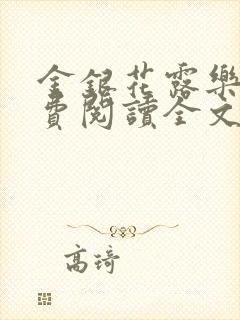 金銀花露樂
費閱讀全文
高琦